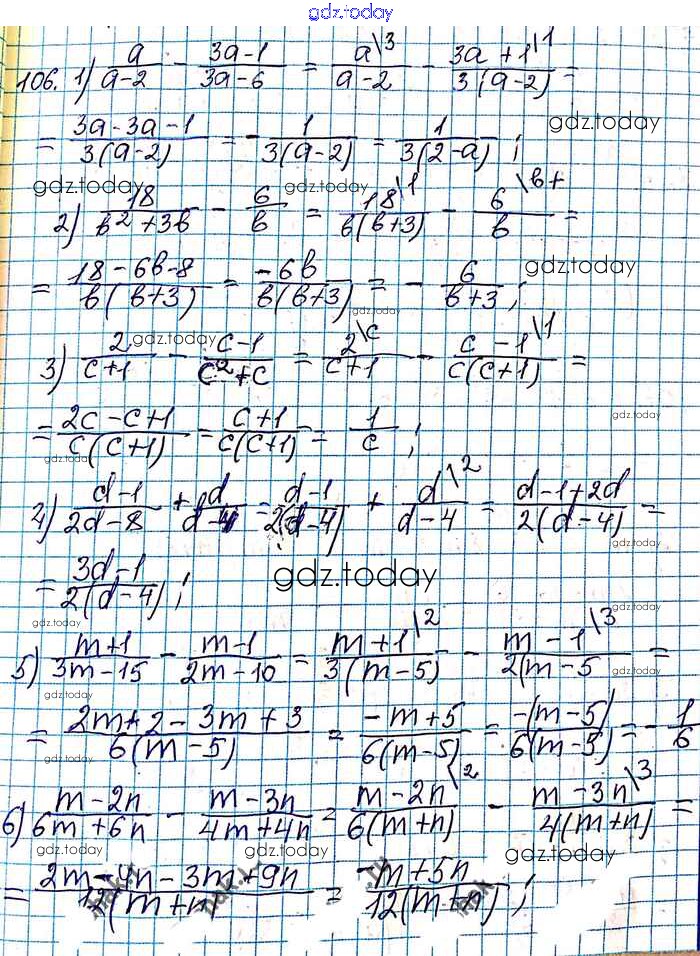 gdz.today
106. 1) a/(a-2) - (3a-1)/(3a-6) = a\3/(a-2) - (3a+1\1)/(3(a-2)) =
= (3a-3a-1)/(3(a-2)) = -1/(3(a-2)) = 1/(3(2-a)) ; gdz.today
gdz.today gdz.today
2) 18/(b²+3b) - 6/b = 18\1/(b(b+3)) - 6\b+/b =
= (18-6b-8)/(b(b+3)) = -6b/(b(b+3)) = -6/(b+3) ; gdz.today
gdz.today gdz.today
3) 2/(c+1) - (c-1)/(c²+c) = 2\c/(c+1) - (c-1\1)/(c(c+1)) =
= (2c-c+1)/(c(c+1)) = (c+1)/(c(c+1)) = 1/c ; gdz.today
gdz.today
4) (d-1)/(2d-8) + d/(d-4) = (d-1)/(2(d-4)) + d\2/(d-4) = (d-1+2d)/(2(d-4)) =
= (3d-1)/(2(d-4)) ; gdz.today
gdz.today gdz.today
5) (m+1)/(3m-15) - (m-1)/(2m-10) = (m+1\2)/(3(m-5)) - (m-1\3)/(2(m-5 =
gdz.today gdz.today
= (2m+2-3m+3)/(6(m-5)) = (-m+5)/(6(m-5)) = -(m-5)/(6(m-5)) = -1/6
gdz.today
6) (m-2n)/(6m+6n) - (m-3n)/(4m+4n) = (m-2n\2)/(6(m+n)) - (m-3n\3)/(4(m+n)) =
gdz.today gdz.today gdz.today
= (2m-4n-3m+9n)/(12(m+n)) = (-m+5n)/(12(m+n)) ;